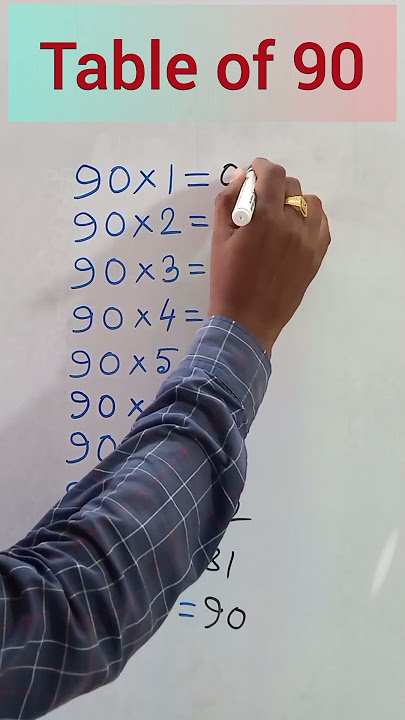 Table of 90
90×1=
90×2=
90×3=
90×4=
90×5
90×
90
31
=90